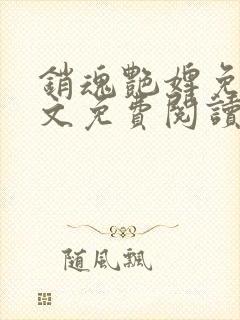 銷魂艷婢免
文免費閱讀
随風飄